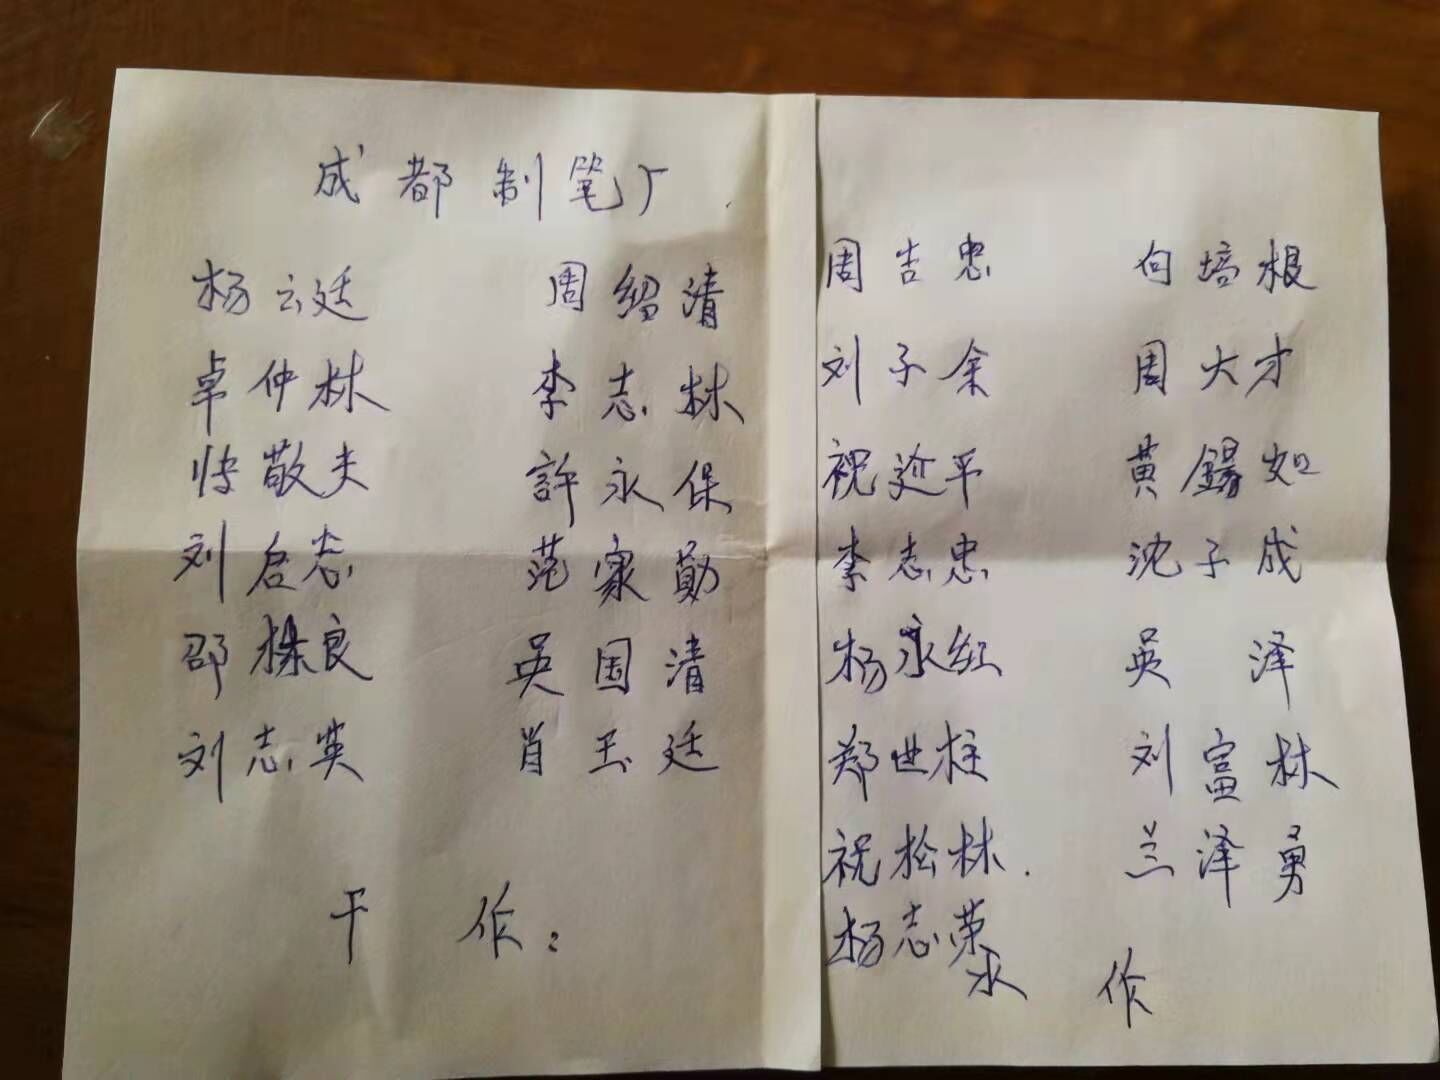 成都制笔厂
杨云廷 周绍清
卓仲林 李志林
帅敬夫 許永保
刘启志 范家勛
邵栋良 吴国清
刘志英 肖玉廷
干作：
周吉忠 向培根
刘子余 周大才
祝延平 黄錫如
李志忠 沈子成
杨永红 吴泽
郑世柱 刘富林
祝松林. 兰泽勇
杨志荣
水作